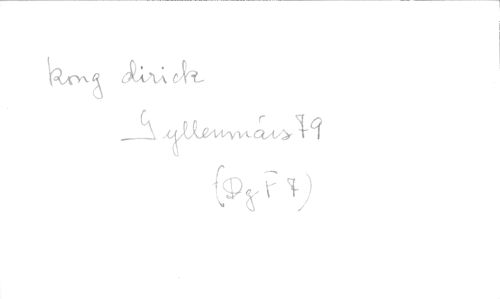 kong dirick
Gyllenmärs 79
(DgF 7)